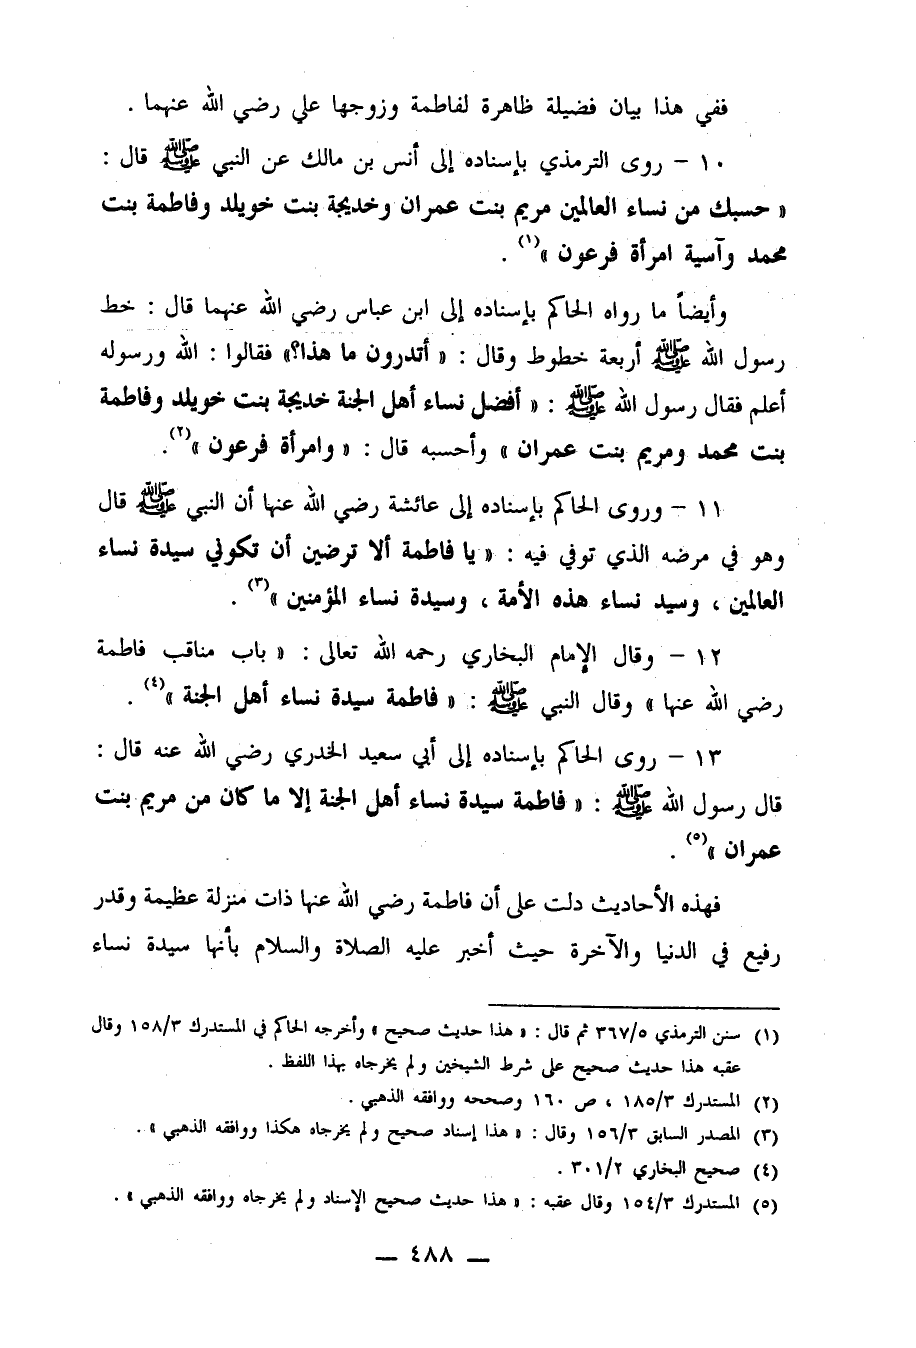 ففي هذا بيان فضيلة ظاهرة لفاطمة وزوجها علي رضي الله عنهما .
١٠ – روى الترمذي بإسناده إلى أنس بن مالك عن النبي ﷺ قال :
« حسبك من نساء العالمين مريم بنت عمران وخديجة بنت خويلد وفاطمة بنت
محمد وآسية امرأة فرعون »(١) .
وأيضاً ما رواه الحاكم بإسناده إلى ابن عباس رضي الله عنهما قال : خط
رسول الله ﷺ أربعة خطوط وقال : « أتدرون ما هذا؟» فقالوا : الله ورسوله
أعلم فقال رسول الله ﷺ : « أفضل نساء أهل الجنة خديجة بنت خويلد وفاطمة
بنت محمد ومريم بنت عمران » وأحسبه قال : « وامرأة فرعون »(٢).
١١ – وروى الحاكم بإسناده إلى عائشة رضي الله عنها أن النبي ﷺ قال
وهو في مرضه الذي توفي فيه : « يا فاطمة ألا ترضين أن تكوني سيدة نساء
العالمين ، وسيد نساء هذه الأمة ، وسيدة نساء المؤمنين »(٣) .
١٢ – وقال الإمام البخاري رحمه الله تعالى : « باب مناقب فاطمة
رضي الله عنها » وقال النبي ﷺ : « فاطمة سيدة نساء أهل الجنة »(٤) .
١٣ – روى الحاكم بإسناده إلى أبي سعيد الخدري رضي الله عنه قال :
قال رسول الله ﷺ : « فاطمة سيدة نساء أهل الجنة إلا ما كان من مريم بنت
عمران »(٥) .
فهذه الأحاديث دلت على أن فاطمة رضي الله عنها ذات منزلة عظيمة وقدر
رفيع في الدنيا والآخرة حيث أخبر عليه الصلاة والسلام بأنها سيدة نساء
(١) سنن الترمذي ٣٦٧/٥ ثم قال : « هذا حديث صحيح » وأخرجه الحاكم في المستدرك ١٥٨/٣ وقال
عقبه هذا حديث صحيح على شرط الشيخين ولم يخرجاه بهذا اللفظ .
(٢) المستدرك ١٨٥/٣ ، ص ١٦٠ وصححه ووافقه الذهبي .
(٣) المصدر السابق ١٥٦/٣ وقال : « هذا إسناد صحيح ولم يخرجاه هكذا ووافقه الذهبي » .
(٤) صحيح البخاري ٣٠١/٢ .
(٥) المستدرك ١٥٤/٣ وقال عقبه : « هذا حديث صحيح الإسناد ولم يخرجاه ووافقه الذهبي » .
— ٤٨٨ —